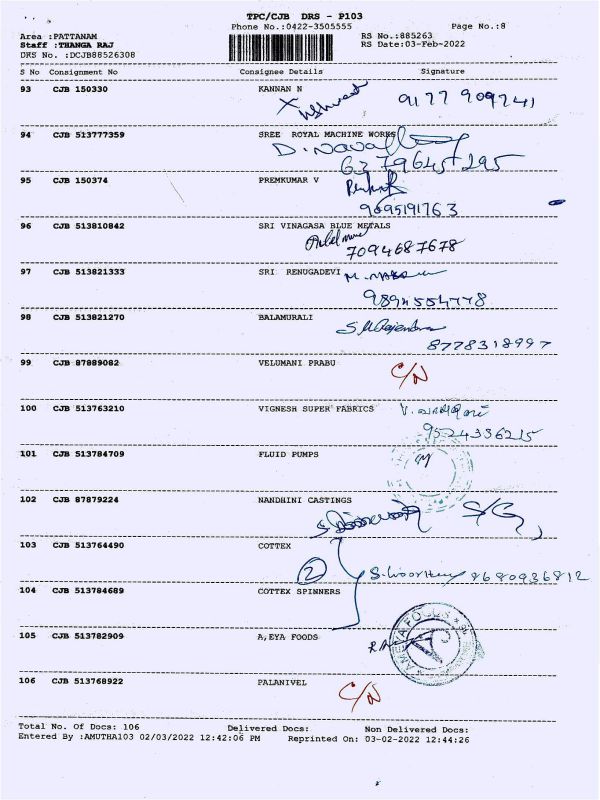 TPC/CJB DRS - P103
Phone No.:0422-3505555 Page No.:8
Area :PATTANAM RS No.:885263
Staff :THANGA RAJ RS Date:03-Feb-2022
DRS No. :DCJB88526308
S No Consignment No Consignee Details Signature
93 CJB 150330 KANNAN N
9177 909741
94 CJB 513777359 SREE ROYAL MACHINE WORKS
D.
6379645295
95 CJB 150374 PREMKUMAR V
9095191763
96 CJB 513810842 SRI VINAGASA BLUE METALS
7094687678
97 CJB 513821333 SRI RENUGADEVI M.
9894554778
98 CJB 513821270 BALAMURALI
8778318997
99 CJB 87889082 VELUMANI PRABU C/N
100 CJB 513763210 VIGNESH SUPER FABRICS V.
9524336215
101 CJB 513784709 FLUID PUMPS
102 CJB 87879224 NANDHINI CASTINGS
103 CJB 513764490 COTTEX
2 8680936812
104 CJB 513784689 COTTEX SPINNERS
105 CJB 513782909 A,EYA FOODS
106 CJB 513768922 PALANIVEL C/N
Total No. Of Docs: 106 Delivered Docs: Non Delivered Docs:
Entered By :AMUTHA103 02/03/2022 12:42:06 PM Reprinted On: 03-02-2022 12:44:26